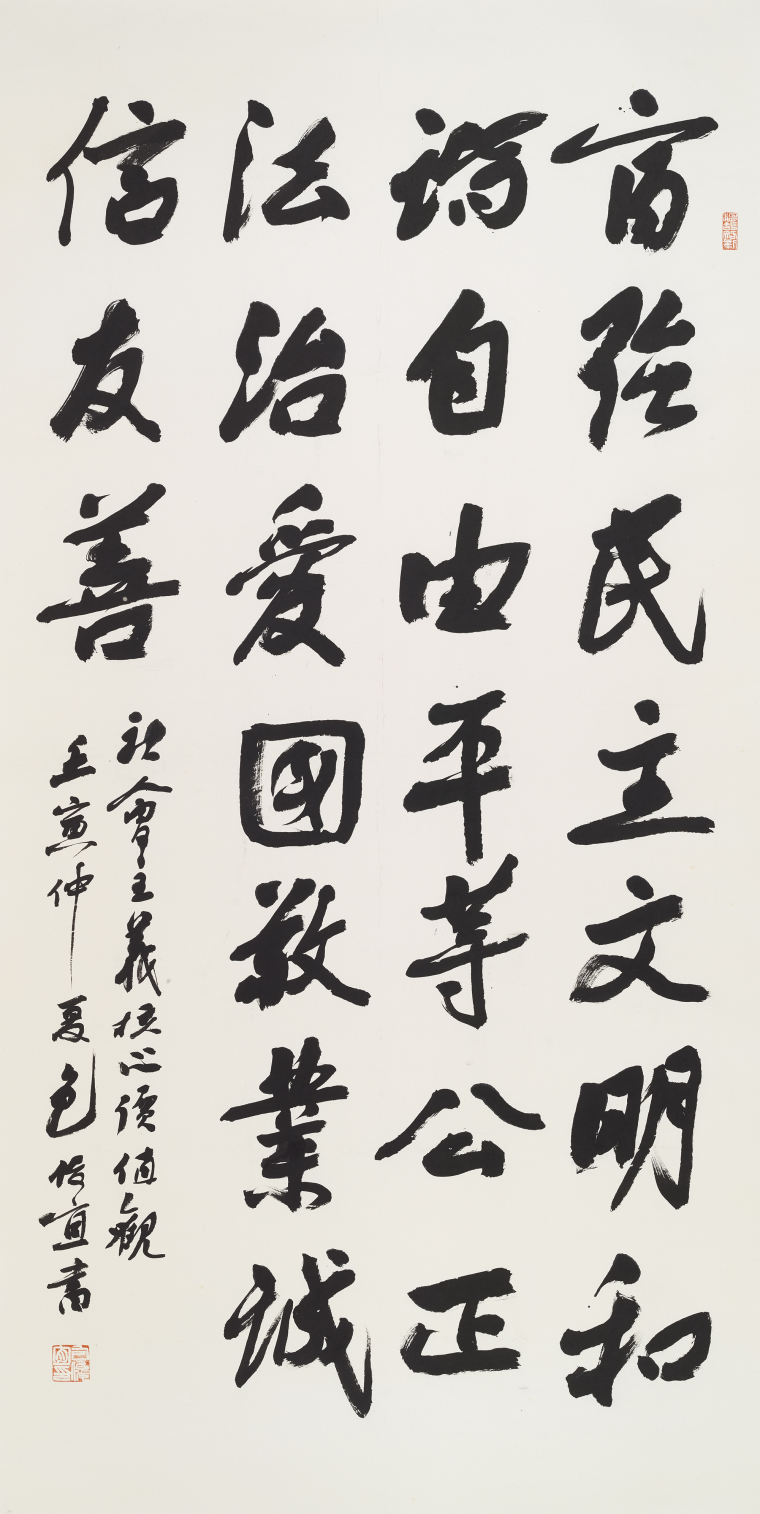 富強民主文明和
諧自由平等公正
法治愛國敬業誠
信友善
社會主義核心價值觀
壬寅仲夏包俊宜書